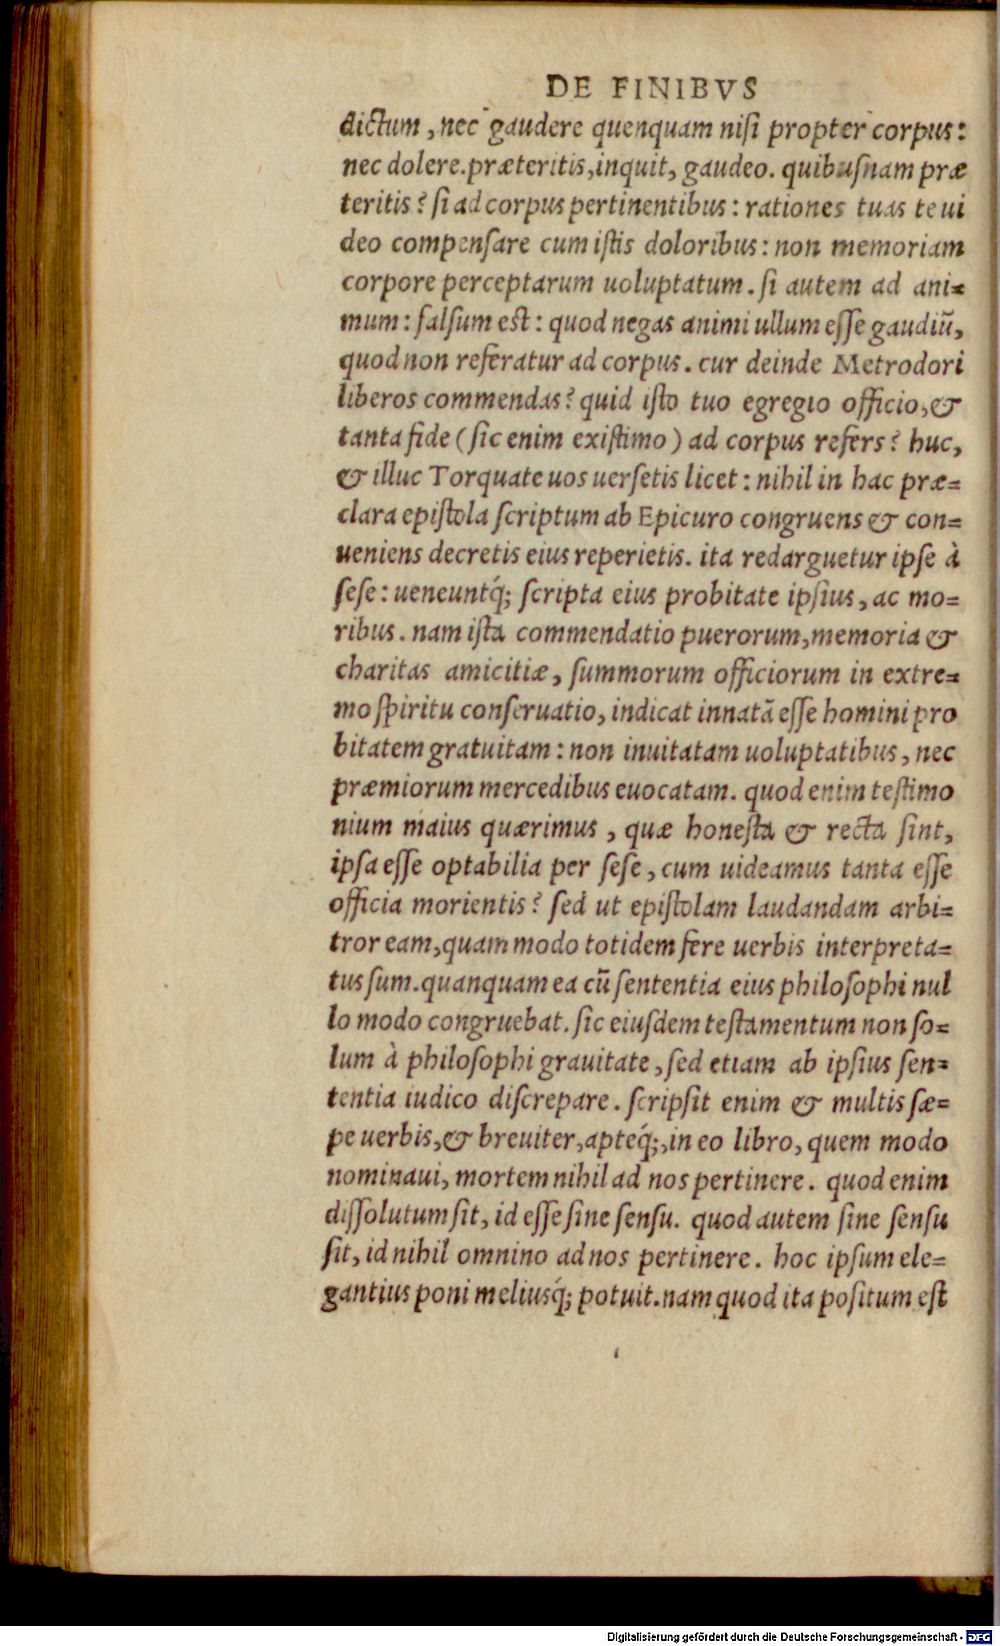 DE FINIBVS
dictum, nec gaudere quenquam nisi propter corpus:
nec dolere. præteritis, inquit, gaudeo. quibusnam præ
teritis? si ad corpus pertinentibus: rationes tuas te ui
deo compensare cum istis doloribus: non memoriam
corpore perceptarum uoluptatum. si autem ad ani=
mum: falsum est: quod negas animi ullum esse gaudiũ,
quod non referatur ad corpus. cur deinde Metrodori
liberos commendas? quid isto tuo egregio officio, &
tanta fide (sic enim existimo) ad corpus refers? huc,
& illuc Torquate uos uersetis licet: nihil in hac præ=
clara epistola scriptum ab Epicuro congruens & con=
ueniens decretis eius reperietis. ita redarguetur ipse à
sese: ueneuntq́; scripta eius probitate ipsius, ac mo=
ribus. nam ista commendatio puerorum, memoria &
charitas amicitiæ, summorum officiorum in extre=
mo spiritu conseruatio, indicat innatã esse homini pro
bitatem gratuitam: non inuitatam uoluptatibus, nec
præmiorum mercedibus euocatam. quod enim testimo
nium maius quærimus, quæ honesta & recta sint,
ipsa esse optabilia per sese, cum uideamus tanta esse
officia morientis? sed ut epistolam laudandam arbi=
tror eam, quam modo totidem fere uerbis interpreta=
tus sum. quanquam ea cũ sententia eius philosophi nul
lo modo congruebat. sic eiusdem testamentum non so=
lum à philosophi grauitate, sed etiam ab ipsius sen=
tentia iudico discrepare. scripsit enim & multis sæ=
pe uerbis, & breuiter, apteq́;, in eo libro, quem modo
nominaui, mortem nihil ad nos pertinere. quod enim
dissolutum sit, id esse sine sensu. quod autem sine sensu
sit, id nihil omnino ad nos pertinere. hoc ipsum ele=
gantius poni meliusq́; potuit. nam quod ita positum est
Digitalisierung gefördert durch die Deutsche Forschungsgemeinschaft - DFG